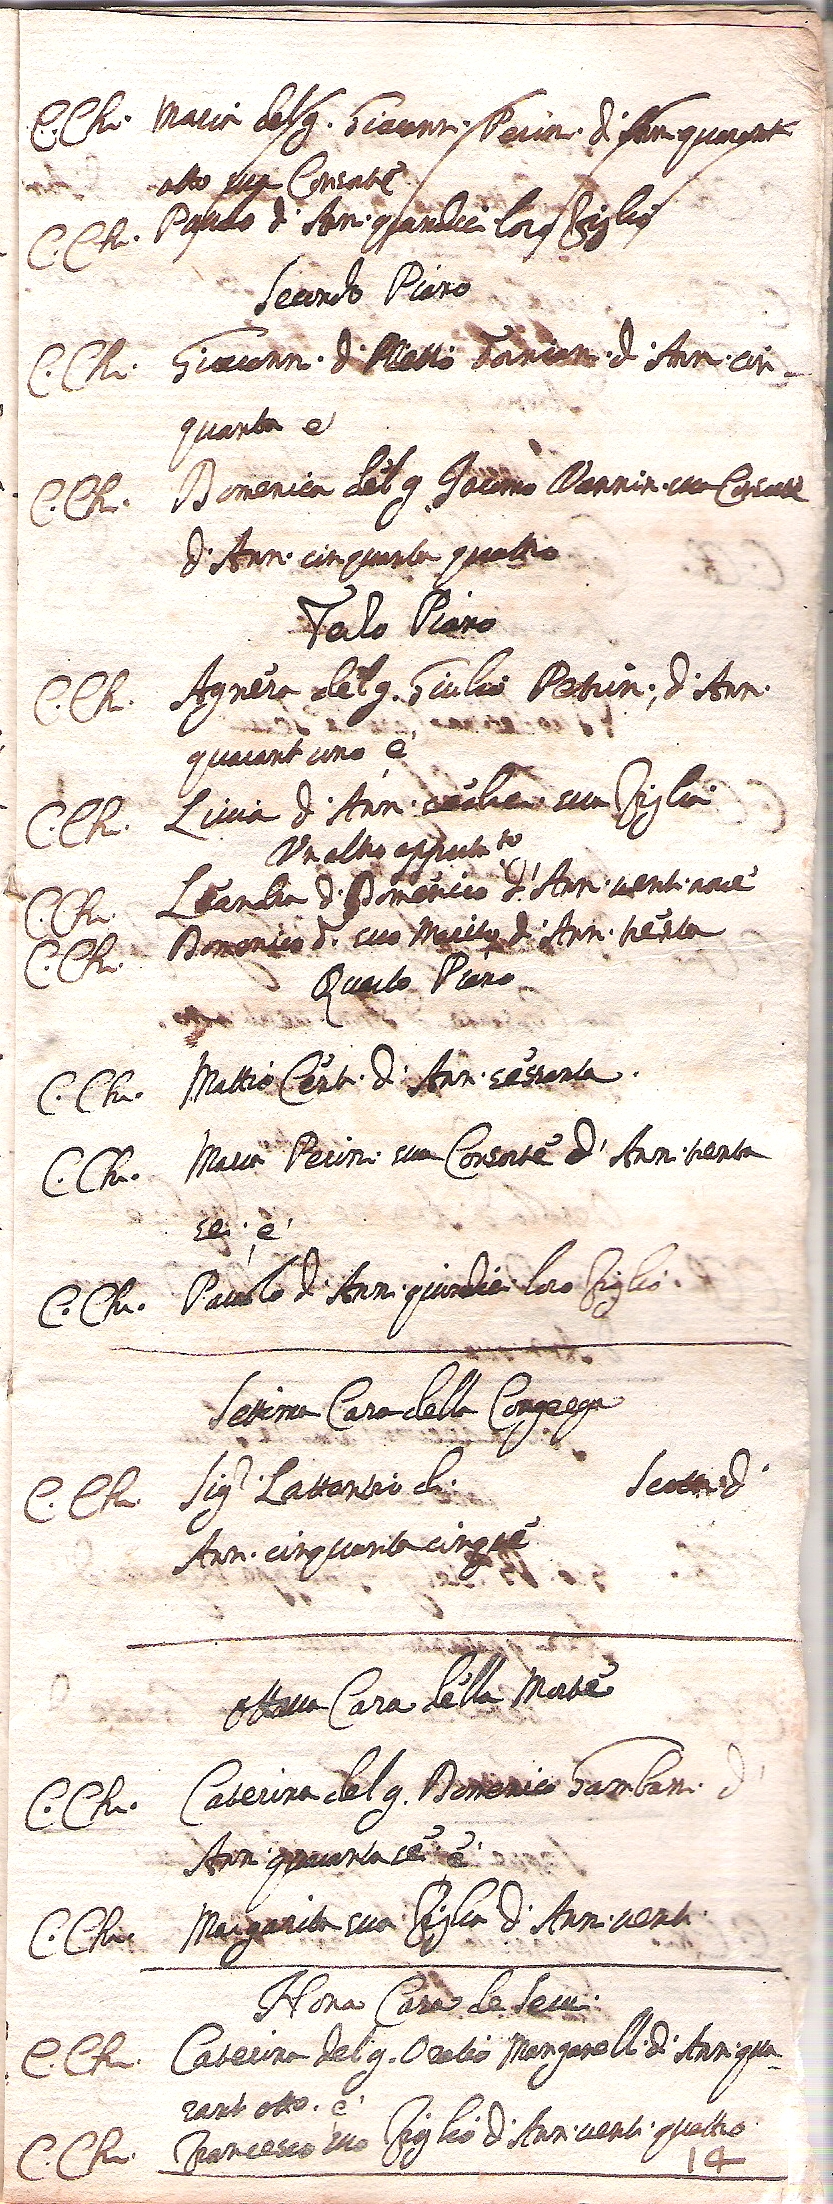 C. Ch. Maria del q. Giovann. Perin. d'Ann. quarant'
otto sua Consorte
C. Ch. Paulo d'Ann. quindici loro Figlio
Secondo Piano
C. Ch. Giovann. d. Mattio d'Ann. cin-
quanta e
C. Ch. Domenica del q. Jacomo Vannin. sua Consorte
d'Ann. cinquanta quattro
Terzo Piano
C. Ch. Agnesa del q. Giulio Petrin. d'Ann.
quarant'uno e'
C. Ch. Livia d'Ann. sua Figlia
Un altro appartto
C. Ch. Leandra d. Domenico d'Ann. vent. nove
C. Ch. Domenico d. suo Marito d'Ann. trenta
Quarto Piano
C. Ch. Mattio Cent. d'Ann. sessanta.
C. Ch. Maria Perin. sua Consorte d'Ann. trenta
sei. e'
C. Ch. Paulo d'Ann. quindic. loro Figlio.
Settima Casa della Congrega
C. Ch. Sigr. Lattantio d. Scott. d'
Ann. cinquanta cinque
Ottava Casa della Morte
C. Ch. Caterina del q. Domenico Gambar. d'
Ann. quaranta e'
C. Ch. Margarita sua Figlia d'Ann. vent.
Nona Casa de
C. Ch. Caterina del q. Oratio Manganell. d'Ann. qua-
rant'otto. e'
C. Ch. Francesco suo Figlio d'Ann. vent. quattro
14